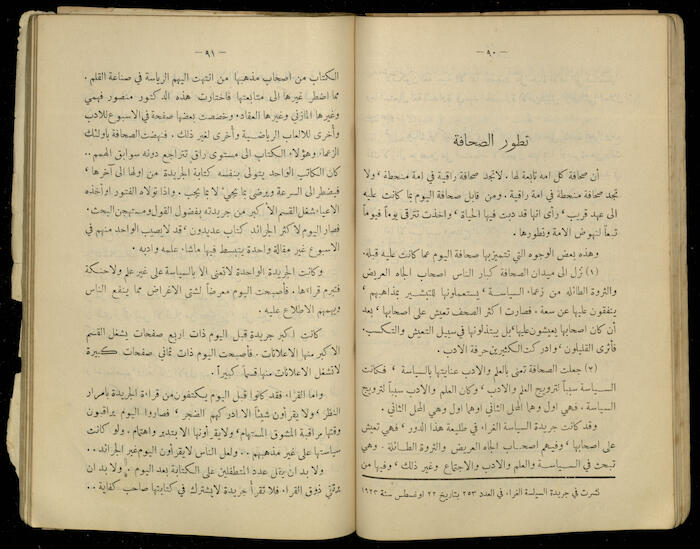 — ٩٠ —
تطور الصحافة
أن صحافة كل امه تابعة لها . لاتجد صحافة راقية في امة منحطة ، ولا
تجد صحافة منحطة في امة راقية . ومن قابل صحافة اليوم بما كانت عليه
الى عهد قريب ، رأى انها قد دبت فيها الحياة ، واخذت تترقى يوماً فيوماً
تبعاً لنهوض الامة وتطورها .
وهذه بعض الوجوه التي تتميز بها صحافة اليوم عما كانت عليه قبله .
(١) نزل الى ميدان الصحافة كبار الناس اصحاب الجاه العريض
والثروة الطائله من زعماء السياسة ، يستعملونها للتبشير بمذاهبهم ،
ينفقون عليها عن سعة . فصارت اكثر الصحف تعيش على اصحابها ، بعد
أن كان اصحابها يعيشون عليها ، بل يبتذلونها في سبيل التعيش والتكسب .
فأثرى القليلون ، وادركت الكثيرين حرفة الادب .
(٢) جعلت الصحافة تعنى بالعلم والادب عنايتها بالسياسة ، فكانت
السياسة سبباً لترويج العلم والادب ، وكان العلم والادب سبباً لترويج
السياسة . فهي اول وهما المحل الثاني وهما اول وهي المحل الثاني .
وقد كانت جريدة السياسة الغراء في طليعة هذا الدور ، فهي تعيش
على اصحابها ، وفيهم اصحاب الجاه العريض والثروة الطائلة . وهي
تبحث في السياسة والعلم والادب والاجتماع وغير ذلك ، وفيها من
نشرت في جريدة السياسة الغراء في العدد ٢٥٣ بتاريخ ٢٢ اوغسطس سنة ١٩٢٣
— ٩١ —
الكتاب من أصحاب مذهبها من انتهت اليهم الرياسة في صناعة القلم .
مما اضطر غيرها الى متابعتها فاختارت هذه الدكتور منصور فهمي
وغيرها المازني وغيرها العقاد . وخصصت بعضها صفحة في الاسبوع للادب
وأخرى للالعاب الرياضية وأخرى لغير ذلك . فنهضت الصحافة باولئك
الزعماء وهؤلاء الكتاب الى مستوى راق تتراجع دونه سوابق الهمم ..
كان الكاتب الواحد يتولى بنفسه كتابة الجريدة من اولها الى آخرها ،
فيضطر الى السرعة ويرضى بما يجيء لا بما يجب . واذا تولاه الفتور اوأخذه
الاعياء شغل القسم الاكبر من جريدته بفضول القول ومستهجن البحث .
فصار اليوم لاكثر الجرائد كتاب عديدون ، قد لا يصيب الواحد منهم في
الاسبوع غير مقالة واحدة يتبسط فيها ماشاء علمه وادبه .
وكانت الجريدة الواحدة لاتعنى الا بالسياسة على غير علم ولاحنكة
فتبرم قراءها . فأصبحت اليوم معرضاً لشتى الاغراض مما ينفع الناس
ويهمهم الاطلاع عليه .
كانت اكبر جريدة قبل اليوم ذات اربع صفحات يشغل القسم
الاكبر منها الاعلانات . فأصبحت اليوم ذات ثماني صفحات كبيرة
لاتشغل الاعلانات منها قسماً كبيراً .
واما القراء فقد كانوا قبل اليوم يكتفون من قراءة الجريدة بامرار
النظر ، ولا يقرأون شيئاً الا ادركهم الضجر ، فصاروا اليوم يراقبون
وقتها مراقبة المشوق المستهام ، ولايقرأونها الا بتدبر واهتمام . ولو كانت
سياستها على غير مذهبهم .. ولعل الناس لا يقرأون اليوم غير الجرائد ..
ولا بد ان يقل عدد المتطفلين على الكتابة بعد اليوم . ولا بد ان
يرتقي ذوق القراء فلا تقرأ جريدة لايشترك في كتابتها صاحب كفاية ..